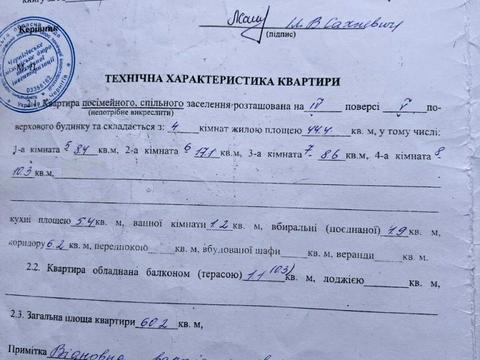 Керівник
И. В. Сахневич
(підпис)
ТЕХНІЧНА ХАРАКТЕРИСТИКА КВАРТИРИ
Квартира посімейного, спільного заселення розташована на IV поверсі V по-
(непотрібне викреслити)
верхового будинку та складається з: 4 кімнат жилою площею 44.4 кв. м, у тому числі:
1-а кімната 5 8.4 кв.м, 2-а кімната 6 17.1 кв.м, 3-а кімната 7 8.6 кв.м, 4-а кімната 8
10.3 кв.м,
кухні площею 5.4 кв. м, ванної кімнати 1.2 кв. м, вбиральні (поєднаної) 1.9 кв. м,
коридору 6.2 кв. м, передпокою кв. м, вбудованої шафи кв. м, веранди кв. м.
2.2. Квартира обладнана балконом (терасою) 1.1 (03) кв. м, лоджією кв. м,
2.3. Загальна площа квартири 60.2 кв. м,
Примітка